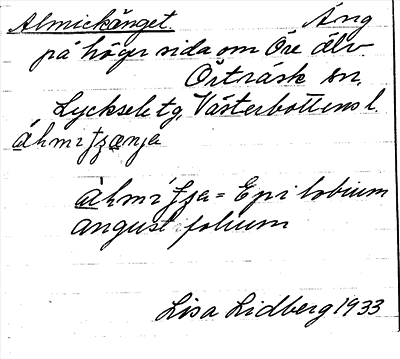 Almickänget. Äng
på höger sida om Öre älv.
Örträsk sn.
Lycksele tg. Västerbottens l.
áhmiʃʒænja
àhmíʃʒa = Epilobium
angustifolium
Lisa Lidberg 1933